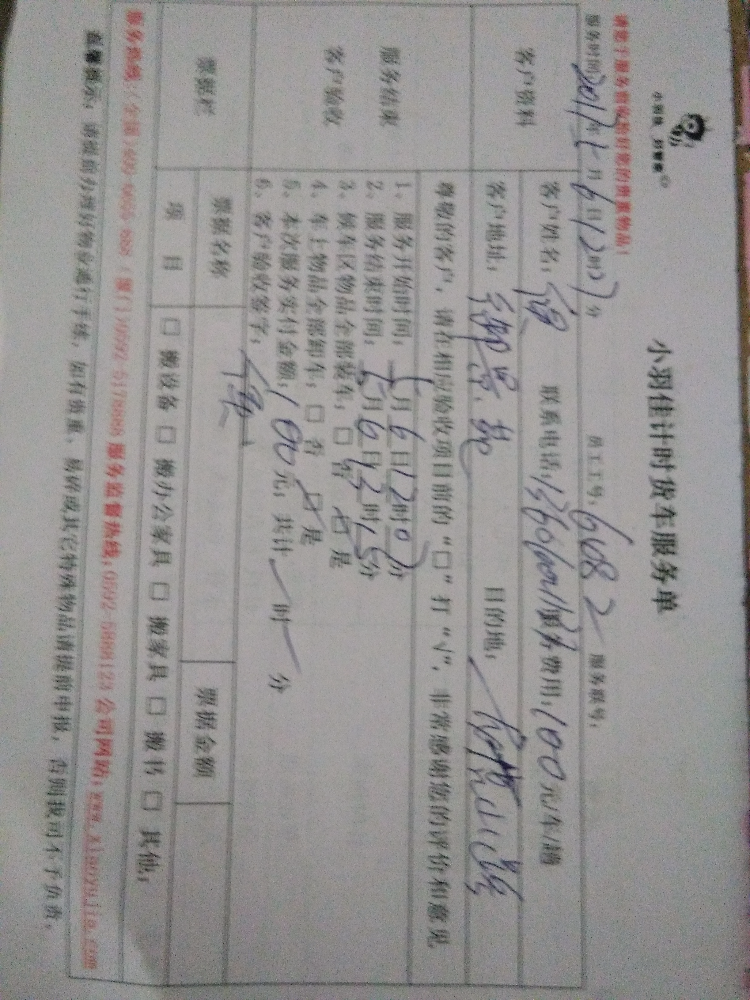 小羽佳 好管家
小羽佳计时货车服务单
请您于服务前收拾好您的贵重物品!
服务时间: 2017年 月6日12时 分 员工工号: 6682 服务联号:
客户资料 客户姓名: 联系电话: 服务费用: 100元/车/趟
客户地址: 御景苑 目的地:
尊敬的客户,请在相应验收项目前的“□”打“√”,非常感谢您的评价和意见
服务结束 客户验收
1、服务开始时间: 月6日12时0 分
2、服务结束时间: 月6日12时15分
3、候车区物品全部装车: □否 □是
4、车上物品全部卸车: □否 □是
5、本次服务实付金额: 100元; 共计 时 分
6、客户验收签字:
票据栏 票据名称 票据金额
项 目 □ 搬设备 □ 搬办公家具 □ 搬家具 □ 搬书 □ 其他:
服务热线:(全国)400-6655-888 (厦门)0592-5178888 服务监督热线:0592-5888123 公司网站:www.xiaoyujia.com
温馨提示: 请提前办理好物业通行手续,如有贵重、易碎或其它特殊物品请提前申报,否则我司不予负责。